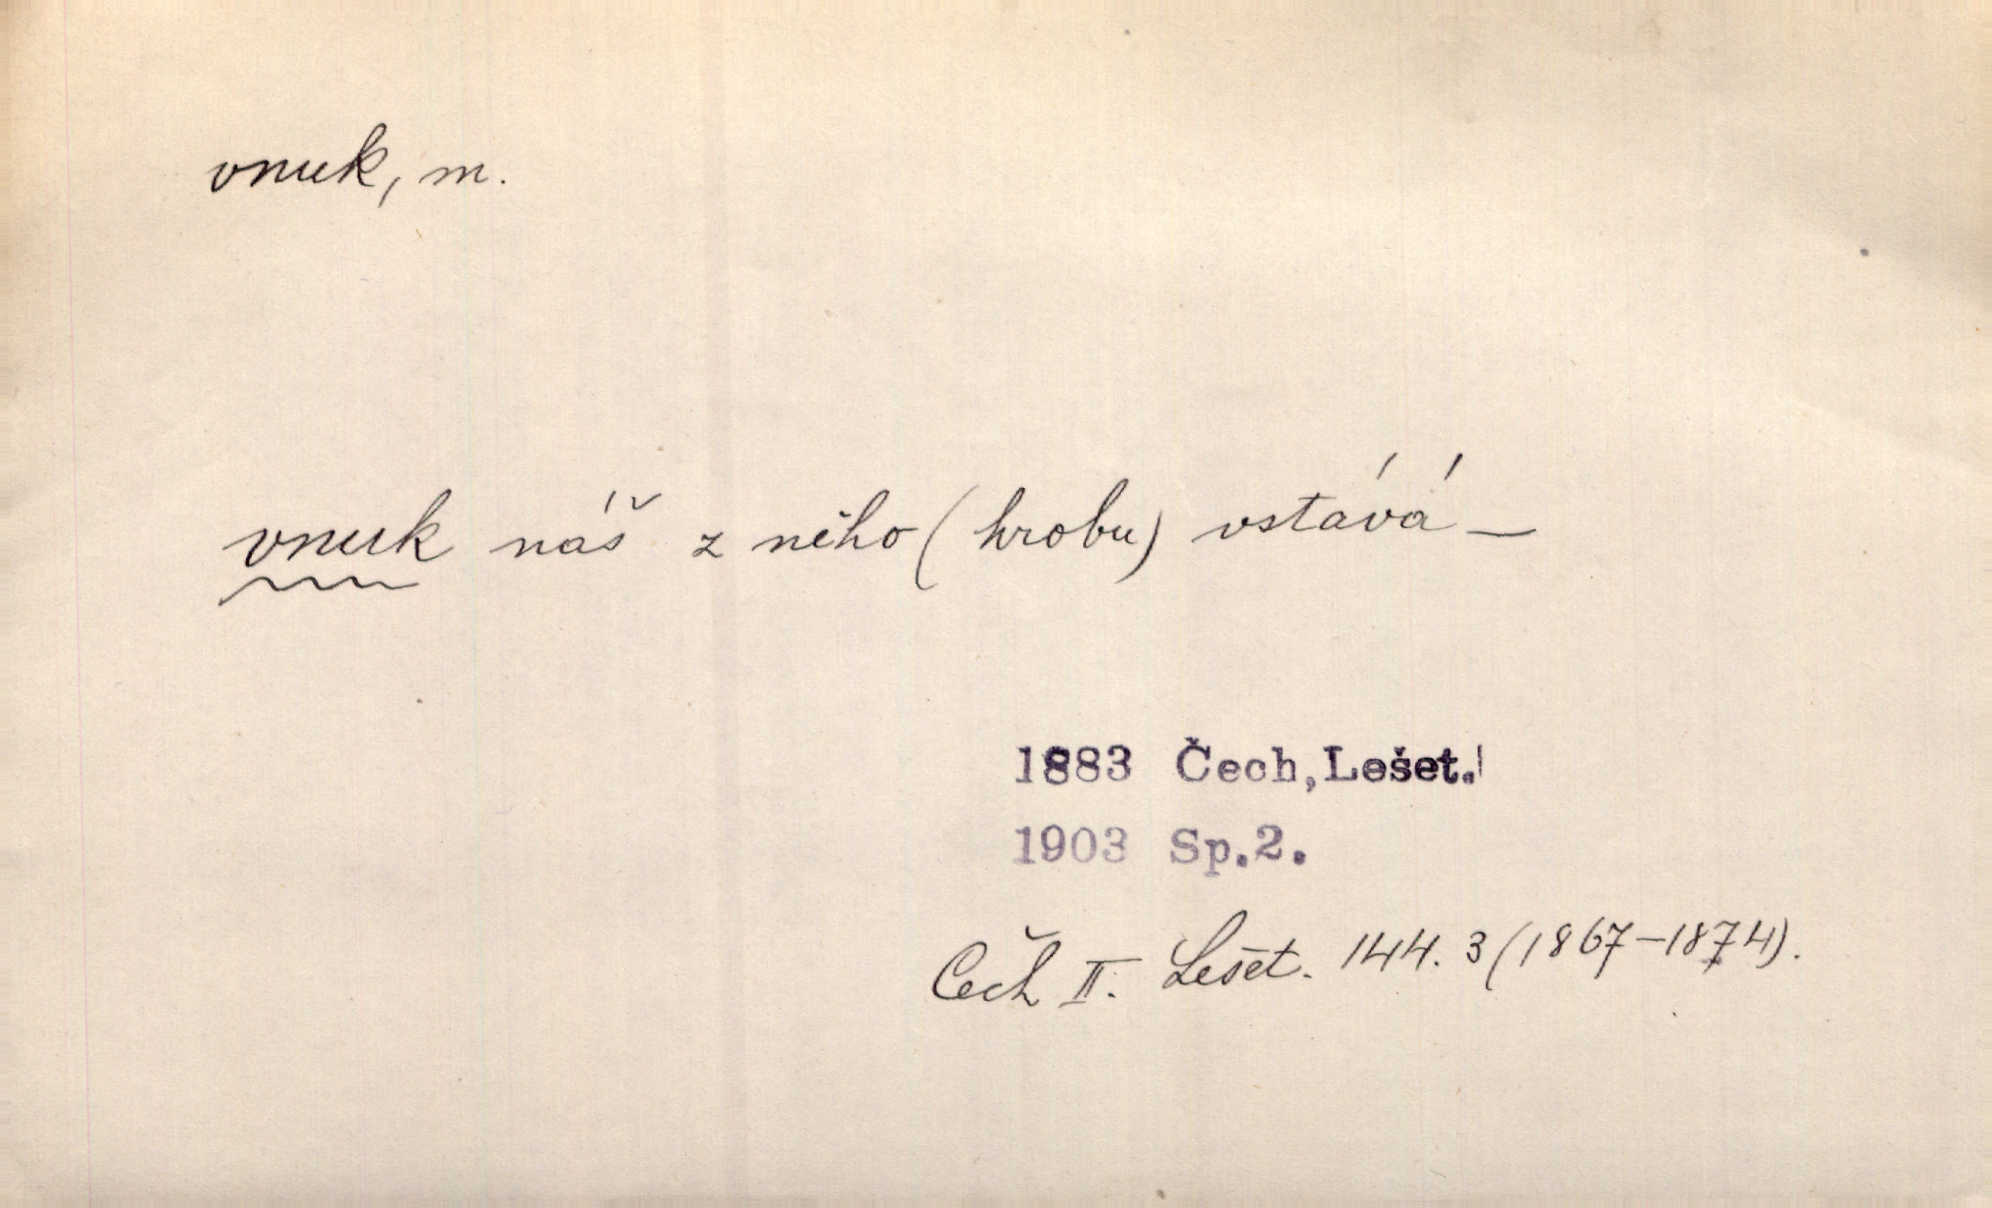 vnuk, m.
vnuk náš z něho (hrobu) vstává —
1883 Čech, Lešet.
1903 Sp.2.
Čech II. Lešet. 144. 3 (1867–1874).